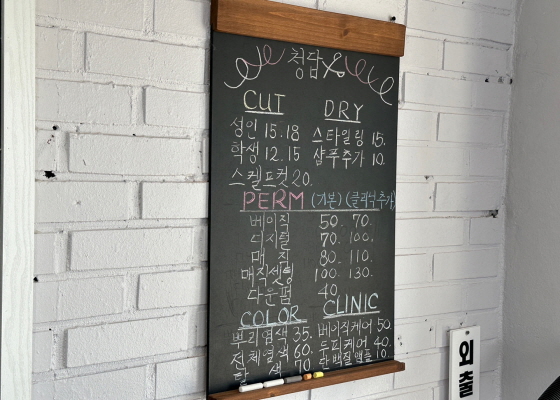 청담
CUT DRY
성인 15.18 스타일링 15.
학생 12.15 샴푸추가 10.
스켈프컷 20.
PERM (기본) (클리닉추가)
베이직 50. 70.
디지털 70. 100.
매직 80. 110.
매직셋팅 100. 130.
다운펌 40
COLOR CLINIC
뿌리염색 35. 베이직케어 50
전체염색 60. 두피케어 40.
탈색 70. 단백질앰플 10.
외출